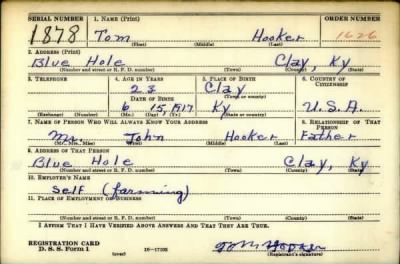 SERIAL NUMBER 1. NAME (Print) ORDER NUMBER
1878 Tom Hooker 1626
(First) (Middle) (Last)
2. ADDRESS (Print)
Blue Hole Clay, Ky
(Number and street or R. F. D. number) (Town) (County) (State)
3. TELEPHONE 4. AGE IN YEARS 5. PLACE OF BIRTH 6. COUNTRY OF CITIZENSHIP
23 Clay
DATE OF BIRTH (Town or county)
6 15, 1917 Ky U.S.A.
(Exchange) (Number) (Mo.) (Day) (Yr.) (State or country)
7. NAME OF PERSON WHO WILL ALWAYS KNOW YOUR ADDRESS 8. RELATIONSHIP OF THAT PERSON
Mr. John Hooker Father
(Mr., Mrs., Miss) (First) (Middle) (Last)
9. ADDRESS OF THAT PERSON
Blue Hole Clay, Ky
(Number and street or R. F. D. number) (Town) (County) (State)
10. EMPLOYER'S NAME
Self (farming)
11. PLACE OF EMPLOYMENT OR BUSINESS
(Number and street or R. F. D. number) (Town) (County) (State)
I AFFIRM THAT I HAVE VERIFIED ABOVE ANSWERS AND THAT THEY ARE TRUE.
REGISTRATION CARD
D. S. S. Form 1 (over) Tom Hooker
(Registrant's signature)